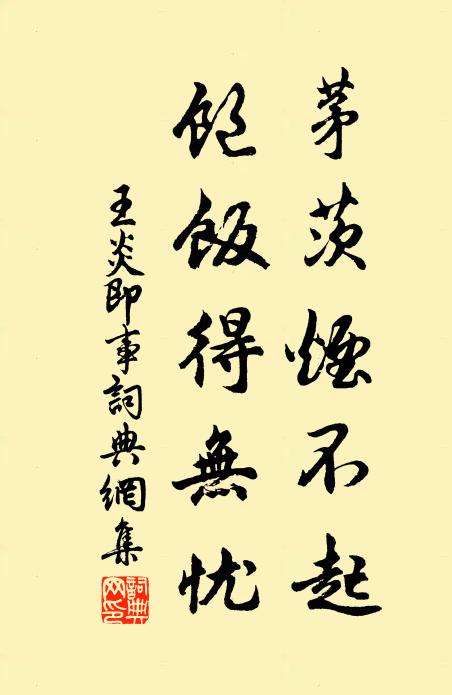 茅茨煙不起
飽飯得無忧
王炎即事詞典網集
詞典网印